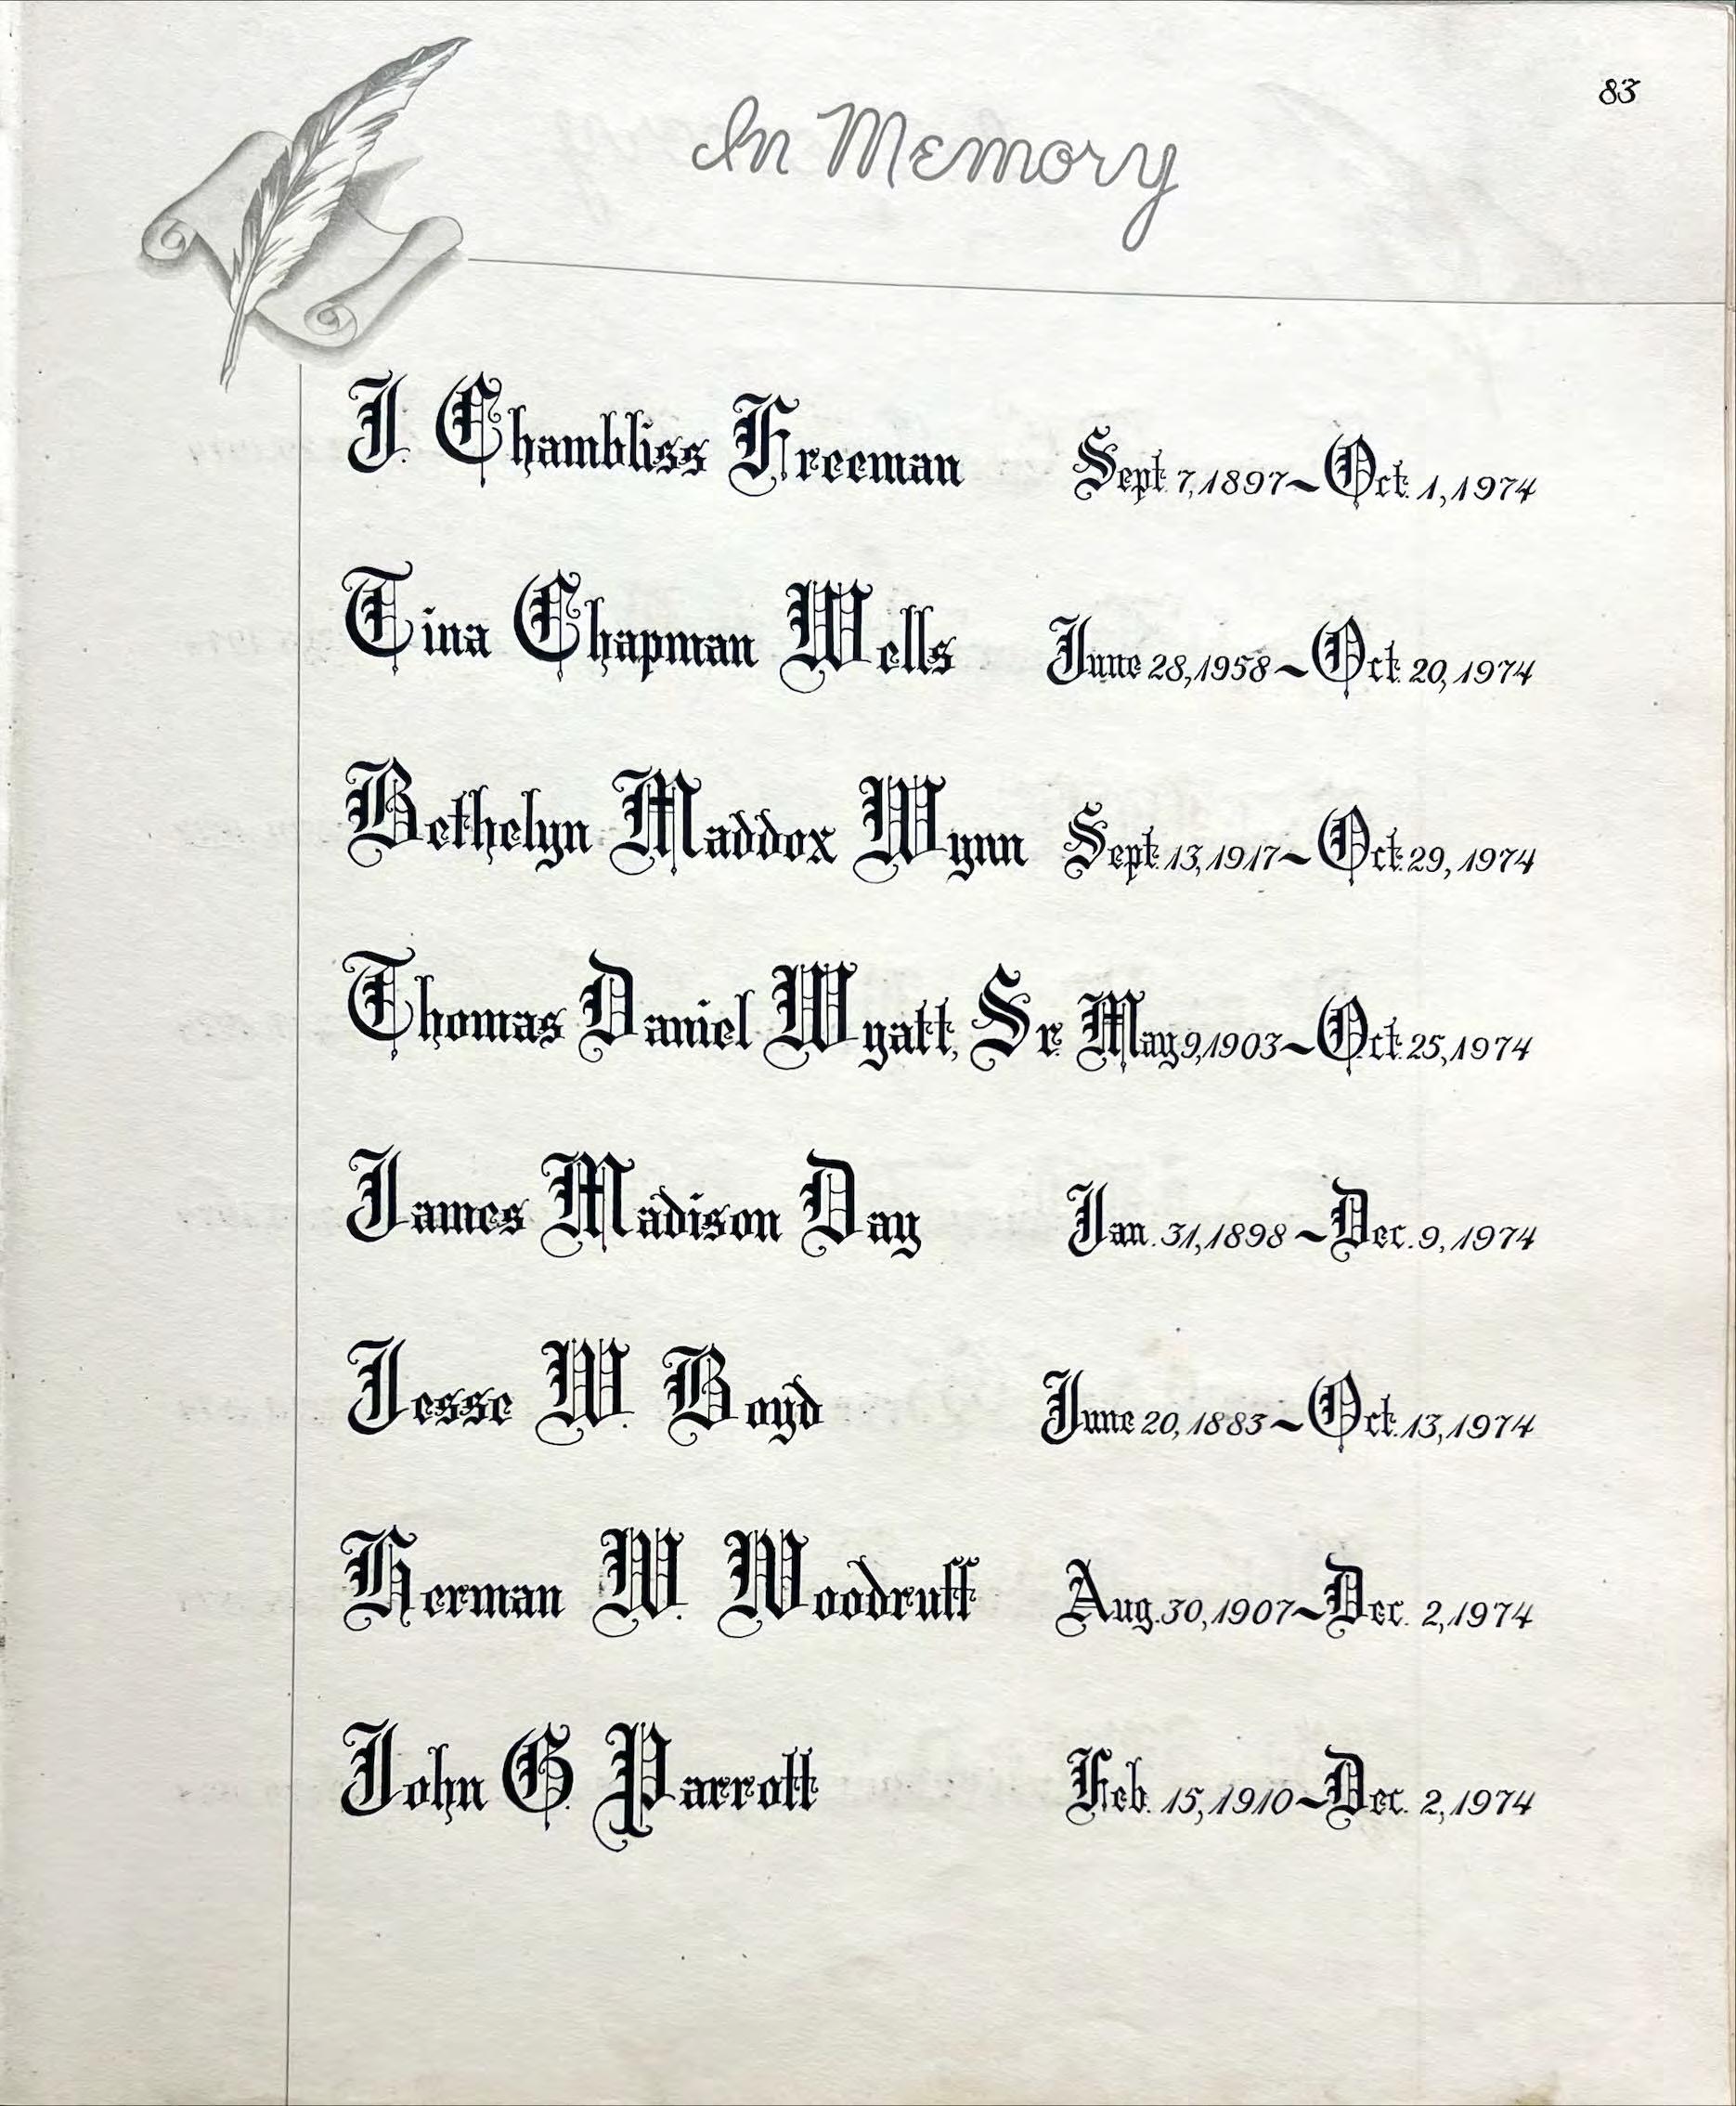 83
In Memory
J. Chambliss Freeman Sept. 7, 1897~Oct. 1, 1974
Tina Chapman Wells June 28, 1958~Oct. 20, 1974
Bethelyn Maddox Wynn Sept. 13, 1917~Oct. 29, 1974
Thomas Daniel Wyatt, Sr. May 9, 1903~Oct. 25, 1974
James Madison Day Jan. 31, 1898~Dec. 9, 1974
Jesse W. Boyd June 20, 1883~Oct. 13, 1974
Herman W. Woodruff Aug. 30, 1907~Dec. 2, 1974
John G. Parrott Feb. 15, 1910~Dec. 2, 1974